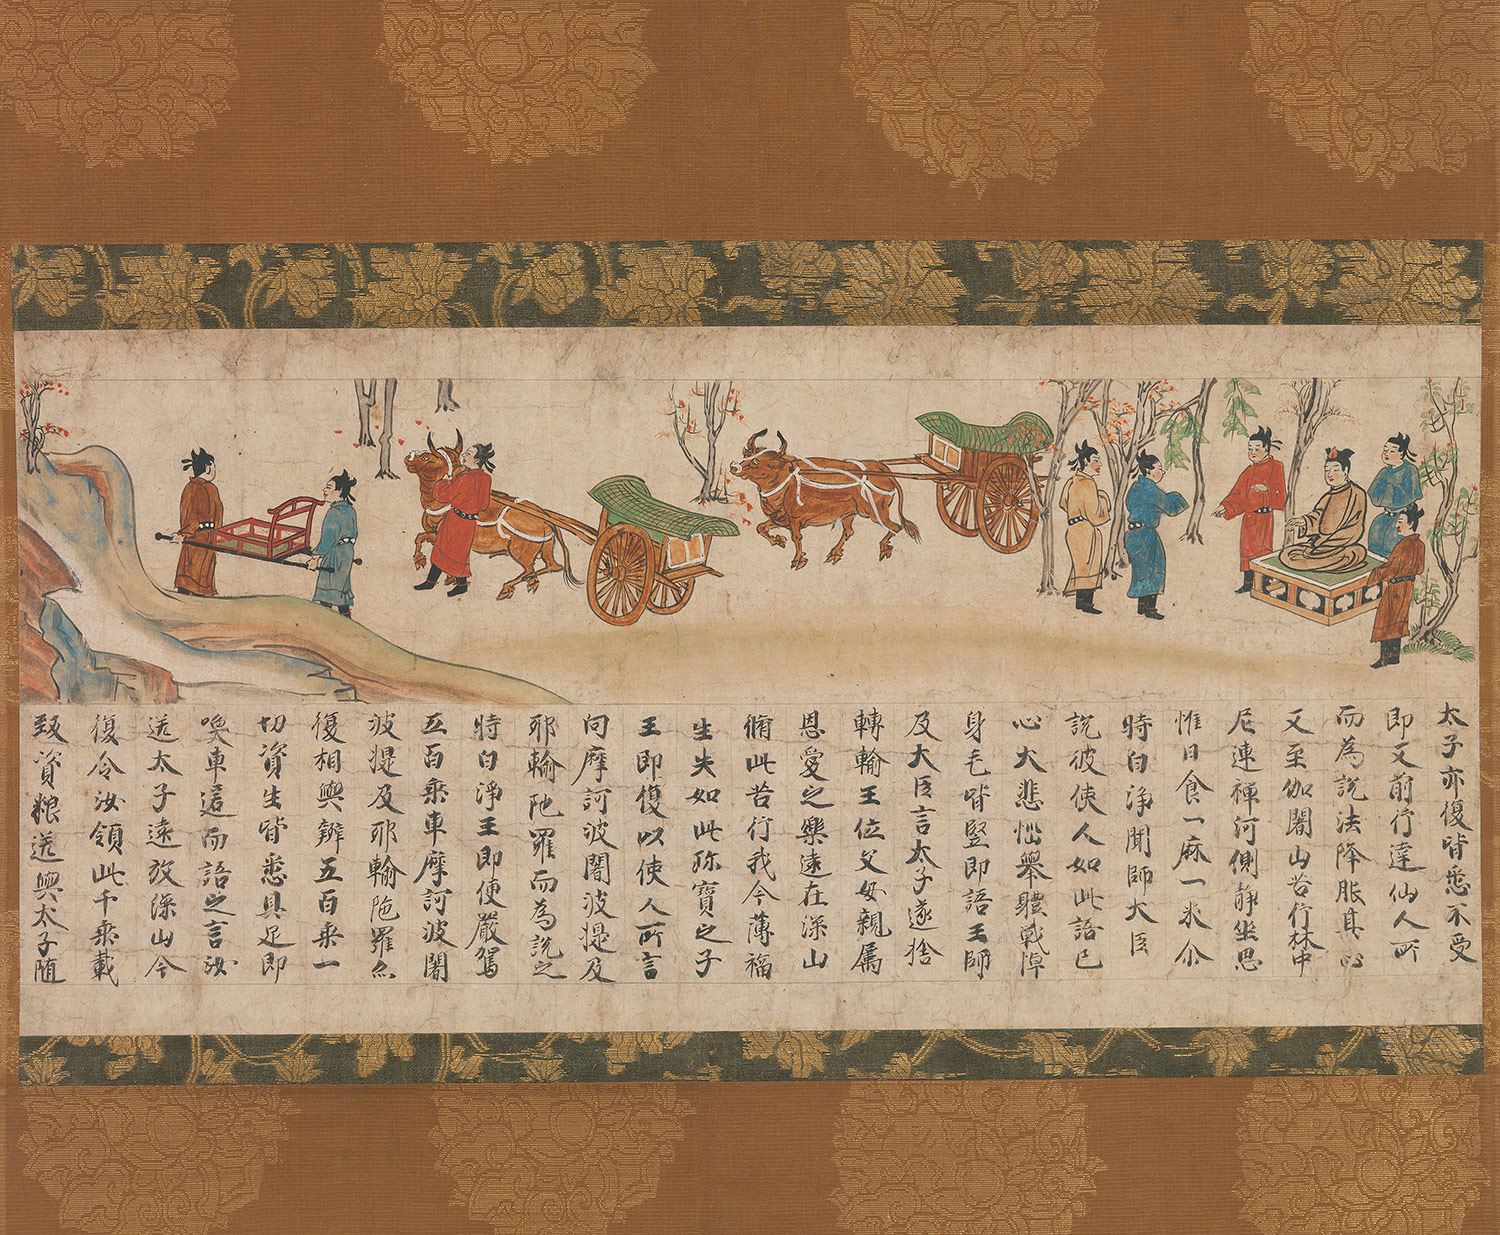 太子亦復皆悉不受
即又前行達仙人所
而為說法降服其心
又至伽闍山苦行林中
尼連禪河側靜坐思
惟日食一麻一米尒
時白淨聞師大臣
說彼使人如此語已
心大悲惱舉體戰悼
身毛皆竪即語王師
及大臣言太子遂捨
轉輪王位父母親屬
恩愛之樂遠在深山
脩此苦行我今薄福
生失如此珎寶之子
王即復以使人所言
向摩訶波闍波提及
耶輸陀羅而為說之
時白淨王即便嚴駕
五百乘車摩訶波闍
波提及耶輸陀羅亦
復相與辦五百乘一
切資生皆悉具足即
喚車匿而語之言汝
送太子遠放深山今
復令汝領此千乘載
致資粮送與太子随